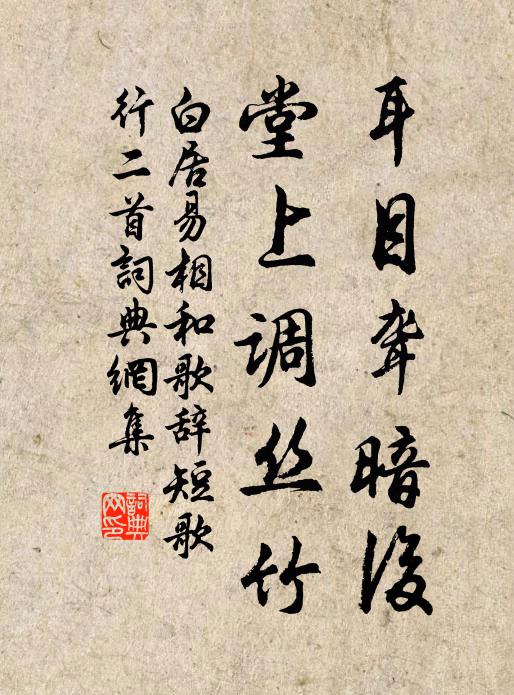 耳目聋暗後
堂上调丝竹
白居易相和歌辞短歌
行二首詞典網集
詞典
网印